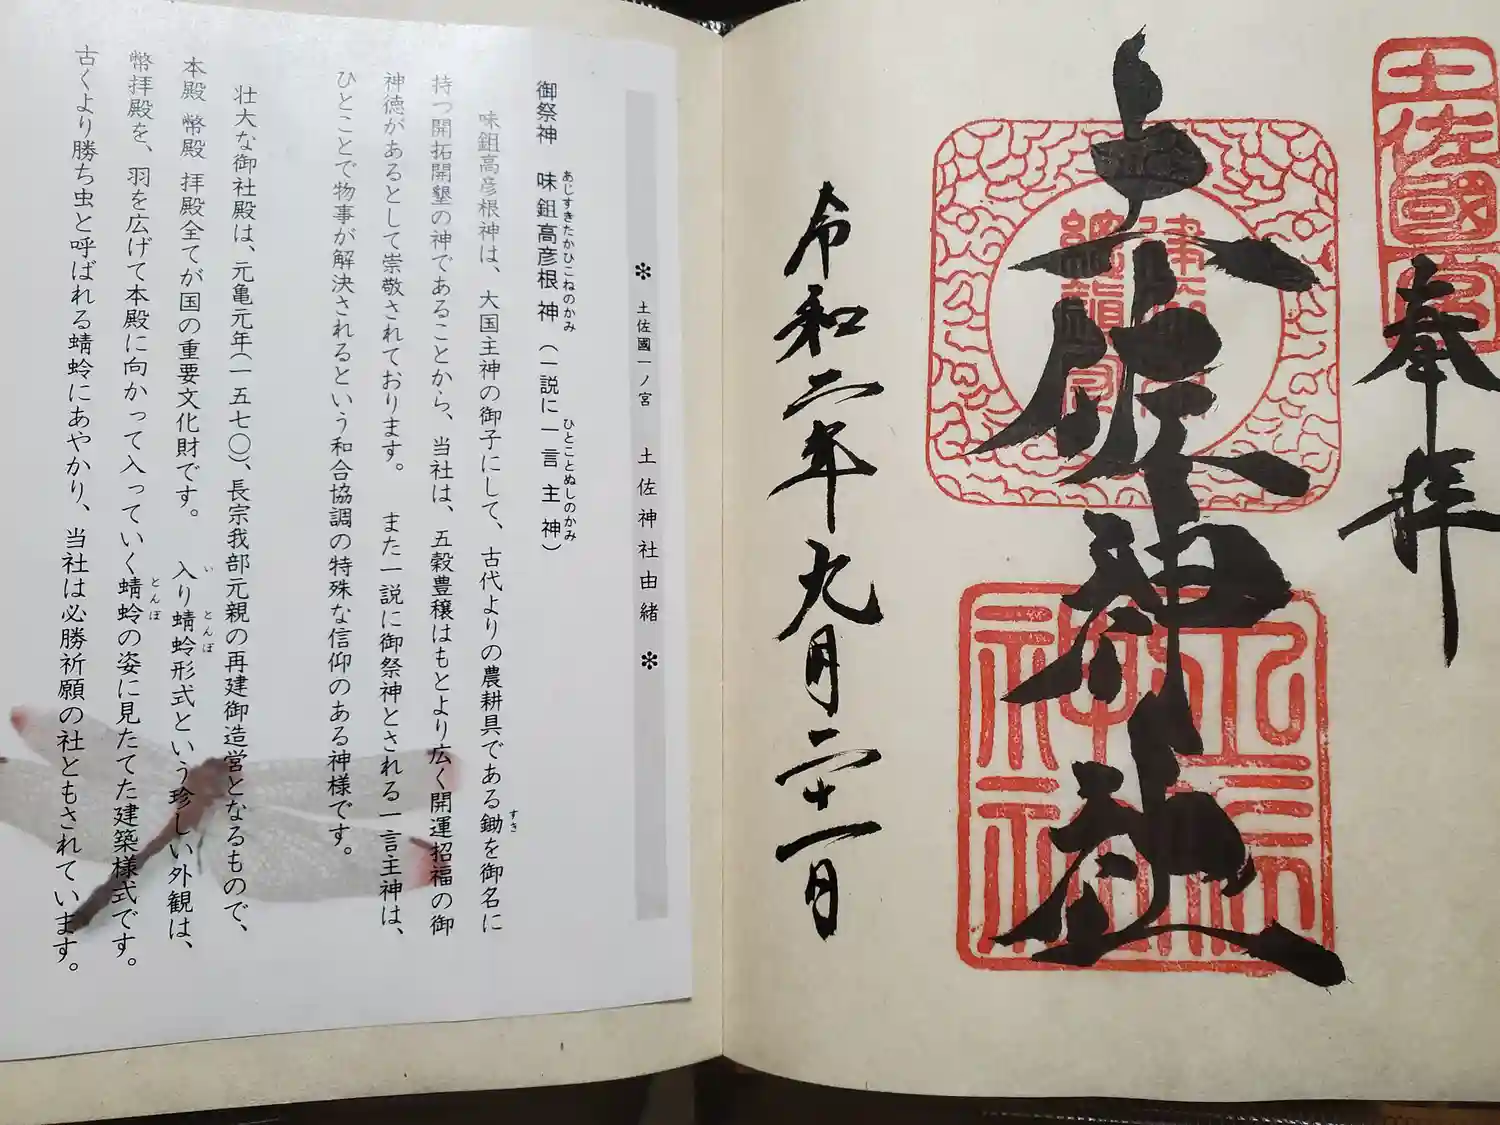 土佐國一宮
奉拝
土佐神社
土佐神社
令和二年九月二十一日
✻ 土佐國一ノ宮 土佐神社由緒 ✻
御祭神 味鉏高彦根神(一説に一言主神)
あじすきたかひこねのかみ ひとことぬしのかみ
味鉏高彦根神は、大国主神の御子にして、古代よりの農耕具である鋤を御名に
すき
持つ開拓開墾の神であることから、当社は、五穀豊穣はもとより広く開運招福の御
神徳があるとして崇敬されております。 また一説に御祭神とされる一言主神は、
ひとことで物事が解決されるという和合協調の特殊な信仰のある神様です。
壮大な御社殿は、元亀元年(一五七〇)、長宗我部元親の再建御造営となるもので、
本殿 幣殿 拝殿全てが国の重要文化財です。 入り蜻蛉形式という珍しい外観は、
い とんぼ
幣拝殿を、羽を広げて本殿に向かって入っていく蜻蛉の姿に見たてた建築様式です。
とんぼ
古くより勝ち虫と呼ばれる蜻蛉にあやかり、当社は必勝祈願の社ともされています。